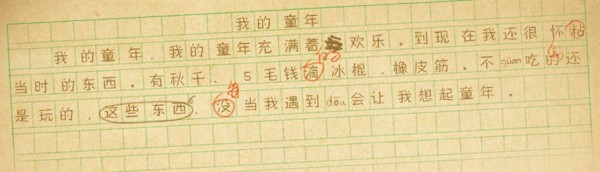 我的童年
我的童年,我的童年充满着欢乐。到现在我还很怀粘
当时的东西。有秋千、5毛钱滴冰棍、橡皮筋。不guan吃的还
是玩的,这些东西,没当我遇到dou会让我想起童年。